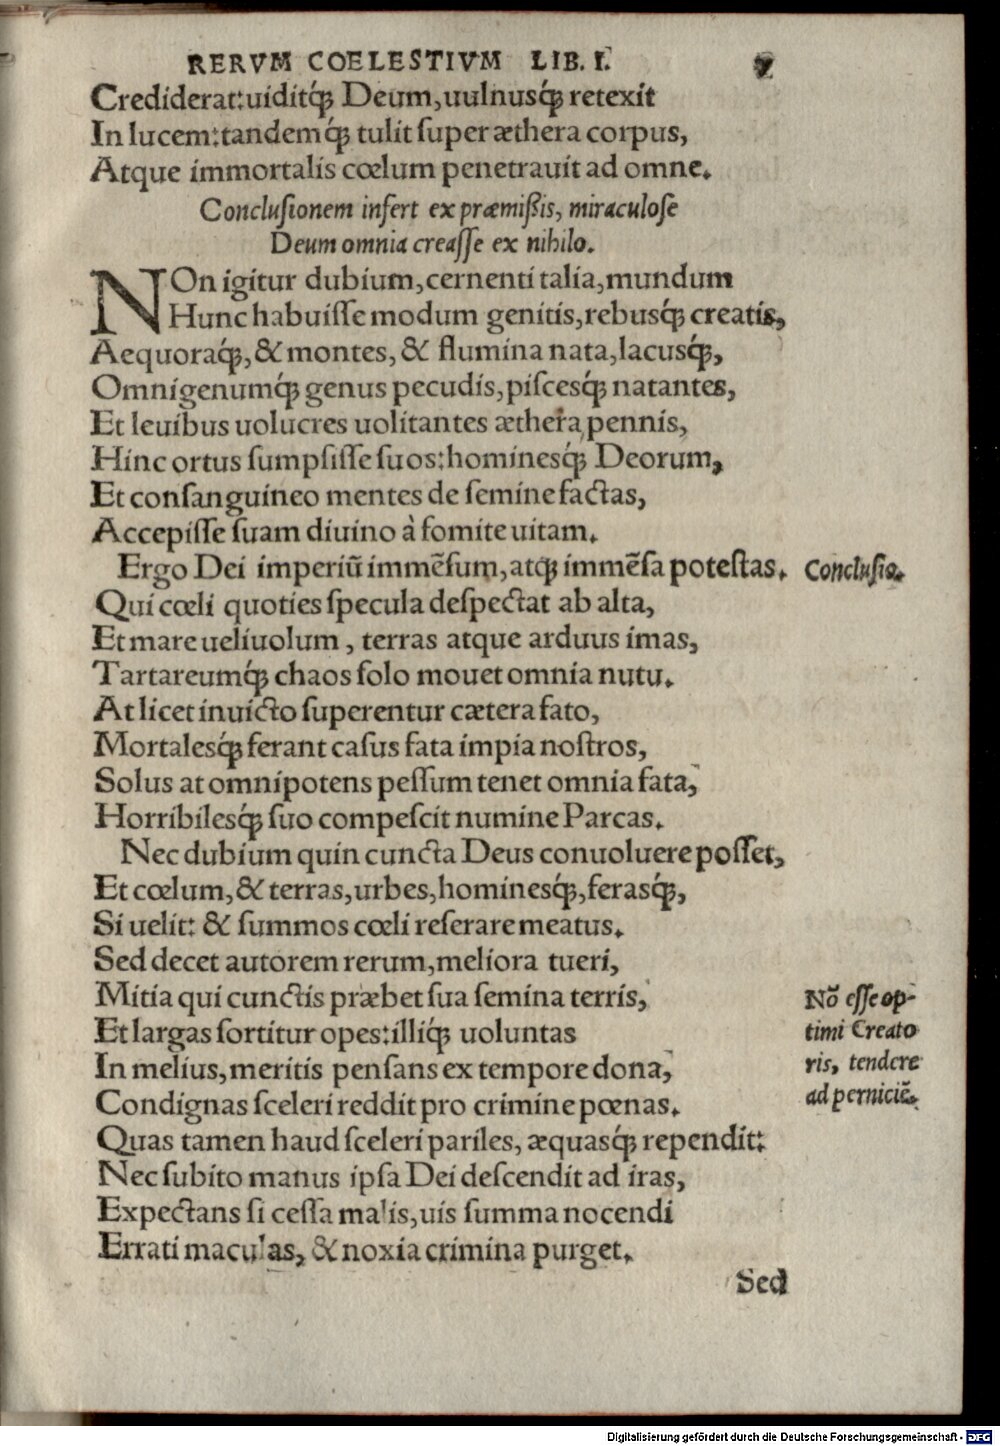 RERVM COELESTIVM LIB. I. 7
Crediderat: uiditq́ꝫ Deum, uulnusq́ꝫ retexit
In lucem: tandemq́ꝫ tulit ſuper æthera corpus,
Atque immortalis cœlum penetrauit ad omne.
Concluſionem infert ex præmiſsis, miraculoſe
Deum omnia creaſſe ex nihilo.
NOn igitur dubium, cernenti talia, mundum
Hunc habuiſſe modum genitis, rebusq́ꝫ creatis,
Aequoraq́ꝫ, & montes, & flumina nata, lacusq́ꝫ,
Omnigenumq́ꝫ genus pecudis, piſcesq́ꝫ natantes,
Et leuibus uolucres uolitantes æthera pennis,
Hinc ortus ſumpſiſſe ſuos: hominesq́ꝫ Deorum,
Et conſanguineo mentes de ſemine factas,
Accepiſſe ſuam diuino à fomite uitam.
Ergo Dei imperiū immēſum, atqꝫ immēſa poteſtas. Concluſio.
Qui cœli quoties ſpecula deſpectat ab alta,
Et mare ueliuolum, terras atque arduus imas,
Tartareumq́ꝫ chaos ſolo mouet omnia nutu.
At licet inuicto ſuperentur cætera fato,
Mortalesq́ꝫ ferant caſus fata impia noſtros,
Solus at omnipotens peſſum tenet omnia fata,
Horribilesq́ꝫ ſuo compeſcit numine Parcas.
Nec dubium quin cuncta Deus conuoluere poſſet,
Et cœlum, & terras, urbes, hominesq́ꝫ, ferasq́ꝫ,
Si uelit: & ſummos cœli reſerare meatus.
Sed decet autorem rerum, meliora tueri,
Mitia qui cunctis præbet ſua ſemina terris,
Et largas ſortitur opes: illiq́ꝫ uoluntas
In melius, meritis penſans ex tempore dona,
Condignas ſceleri reddit pro crimine pœnas.
Nō eſſe op-
timi Creato
ris, tendere
ad perniciē.
Quas tamen haud ſceleri pariles, æquasq́ꝫ rependit:
Nec ſubito manus ipſa Dei deſcendit ad iras,
Expectans ſi ceſſa malis, uis ſumma nocendi
Errati maculas, & noxia crimina purget.
Sed
Digitalisierung gefördert durch die Deutsche Forschungsgemeinschaft - DFG